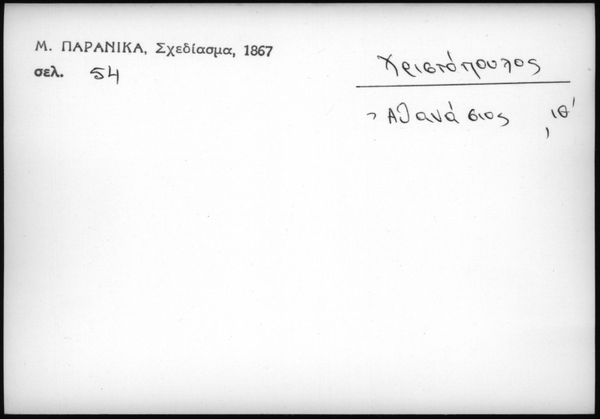 Μ. ΠΑΡΑΝΙΚΑ, Σχεδίασμα, 1867
σελ. 54
Χριστόπουλος
Ἀθανάσιος ιθʹ